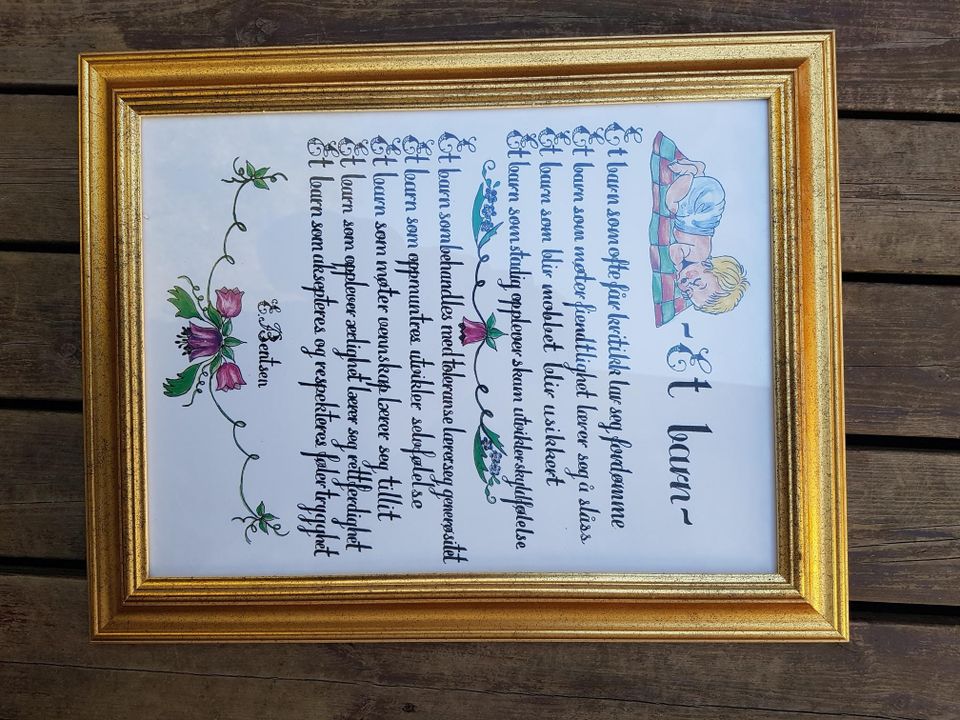 ~Et barn~
Et barn som ofte får kritikk lar seg fordømme
Et barn som møter fiendtlighet lærer seg å slåss
Et barn som blir mobbet blir usikkert
Et barn som stadig opplever skam utvikler skyldfølelse
Et barn som behandles med toleranse lærer seg generøsitet
Et barn som oppmuntres utvikler selvfølelse
Et barn som møter vennskap lærer seg tillit
Et barn som opplever ærlighet lærer seg rettferdighet
Et barn som aksepteres og respekteres føler trygghet
E. Bentsen